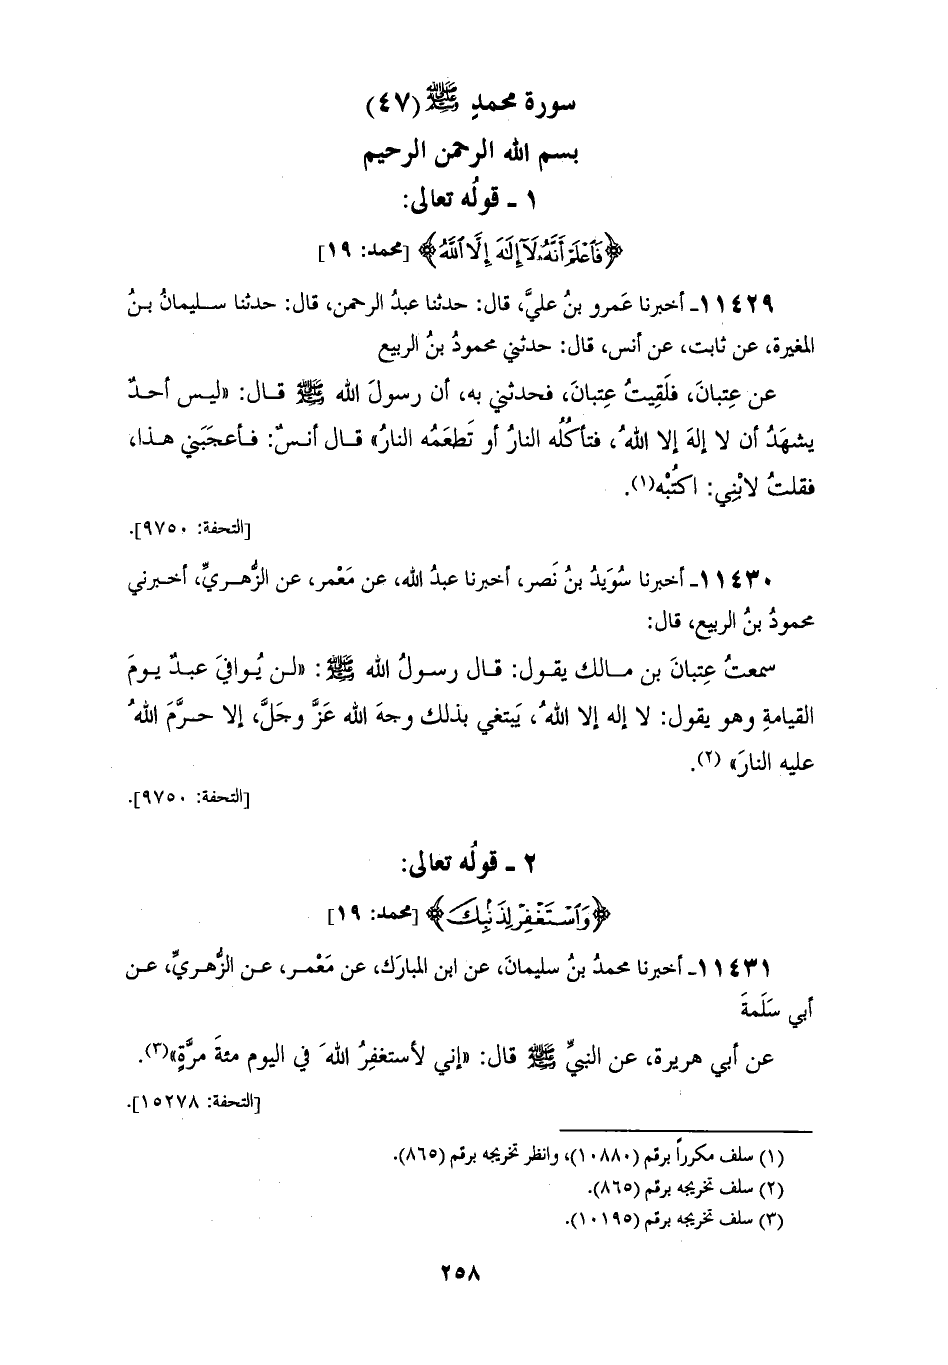 سورة محمدٍ ﷺ (٤٧)
بسم الله الرحمن الرحيم
١ ـ قولُه تعالى:
﴿فَٱعْلَمْ أَنَّهُۥ لَآ إِلَٰهَ إِلَّا ٱللَّهُ﴾ [محمد: ١٩]
١١٤٢٩ـ أخبرنا عَمرو بنُ عليَّ، قال: حدثنا عبدُ الرحمن، قال: حدثنا سليمانُ بنُ
المغيرة، عن ثابت، عن أنس، قال: حدثني محمودُ بنُ الربيع
عن عِتبانَ، فلَقِيتُ عِتبانَ، فحدثني به، أن رسولَ الله ﷺ قال: «ليس أحدٌ
يشهَدُ أن لا إلهَ إلا اللهُ، فتأكُلُه النارُ أو تَطعَمُه النارُ» قال أنسٌ: فأعجَبَني هذا،
فقلتُ لابْنِي: اكتُبْه(١).
[التحفة: ٩٧٥٠].
١١٤٣٠ـ أخبرنا سُوَيدُ بنُ نَصر، أخبرنا عبدُ الله، عن مَعْمر، عن الزُّهريِّ، أخبرني
محمودُ بنُ الربيع، قال:
سمعتُ عِتبانَ بن مالك يقول: قال رسولُ الله ﷺ: «لن يُوافيَ عبدٌ يومَ
القيامةِ وهو يقول: لا إله إلا اللهُ، يَبتغي بذلك وجهَ الله عَزَّ وجلَّ، إلا حرَّمَ اللهُ
عليه النارَ» (٢).
[التحفة: ٩٧٥٠].
٢ ـ قولُه تعالى:
﴿وَٱسْتَغْفِرْ لِذَنۢبِكَ﴾ [محمد: ١٩]
١١٤٣١ـ أخبرنا محمدُ بنُ سليمانَ، عن ابن المبارَك، عن مَعْمر، عن الزُّهريِّ، عن
أبي سَلَمةَ
عن أبي هريرة، عن النبيِّ ﷺ قال: «إني لأستغفِرُ اللهَ في اليوم مئةَ مرَّةٍ»(٣).
[التحفة: ١٥٢٧٨].
(١) سلف مكرراً برقم (١٠٨٨٠)، وانظر تخريجه برقم (٨٦٥).
(٢) سلف تخريجه برقم (٨٦٥).
(٣) سلف تخريجه برقم (١٠١٩٥).
٢٥٨